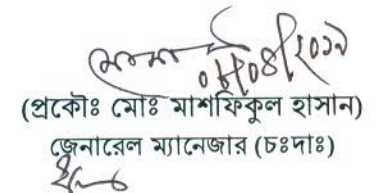 ০৮/০৪/২০১৯
(প্রকৌঃ মোঃ মাশফিকুল হাসান)
জেনারেল ম্যানেজার (চঃদাঃ)